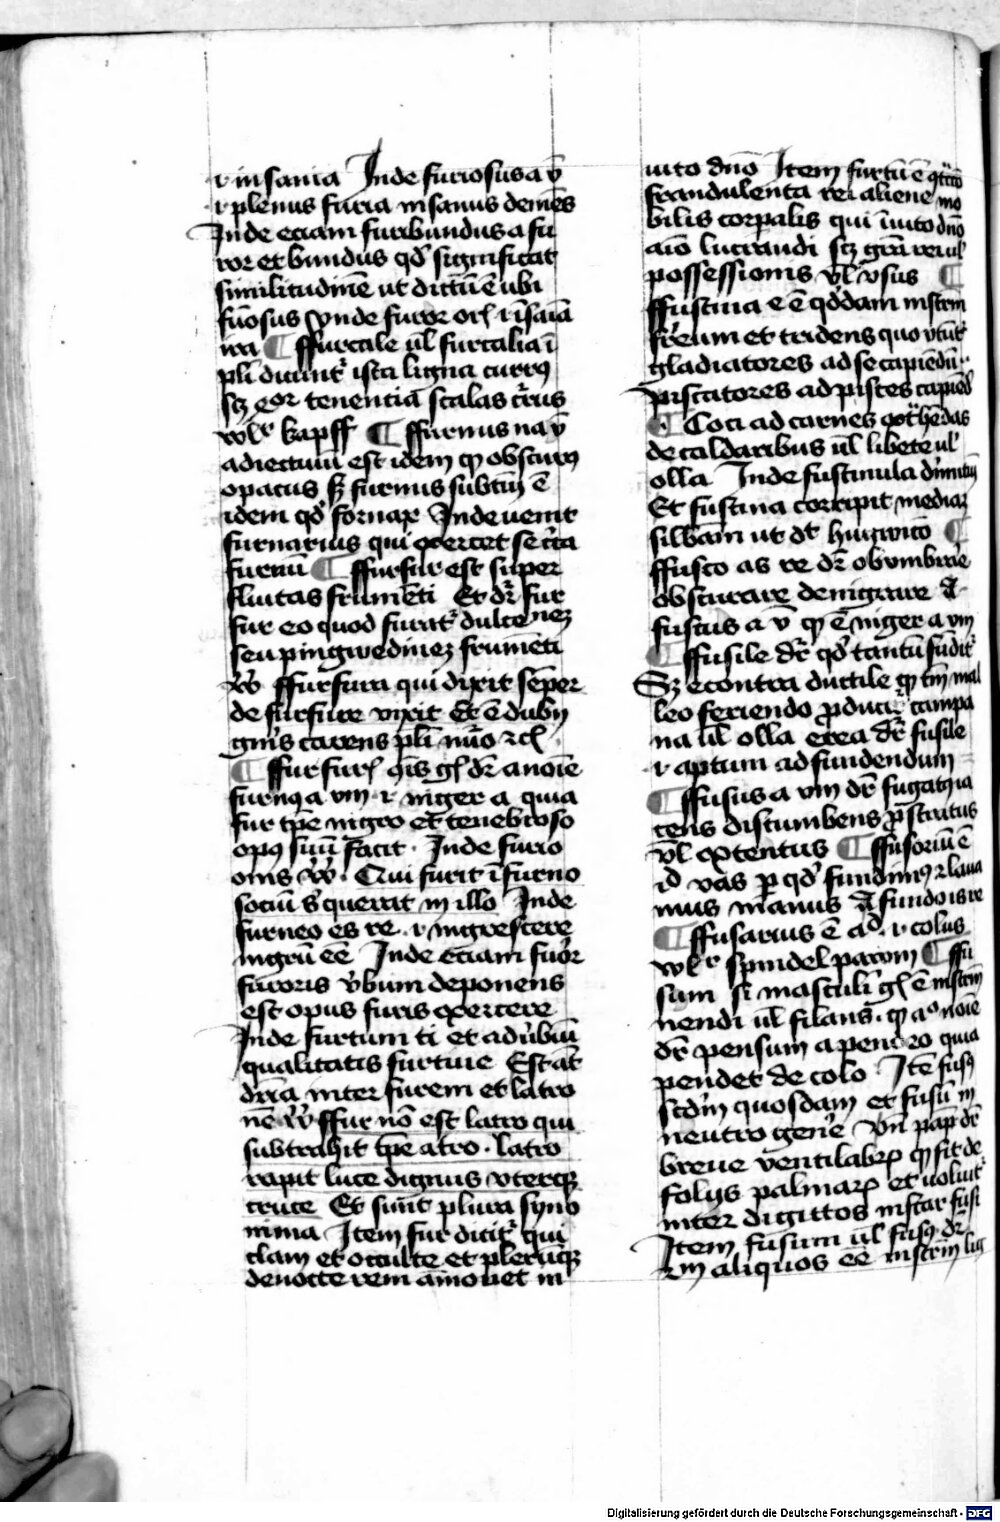 .i. insania Inde furiosus a v̄
.i. plenus furia insanus demēs
Inde eciam furibundus a fu
ror et bundus qd' significat
similitudinē ut dictū ē ubi
fuōsus vnde furor orꝭ .i. īsaīa
ira ¶ ffurcale ul̄ furcalia ī
pl̄i dicunt᷑ ista ligna currꝰ
scꝫ eoꝝ tenencia scalas
wl'r kapff ¶ ffurnus na v̄
adiectiuū est idem qꝫ obscurꝰ
opacus sꝫ furnus subtm̄ ē
idem qd' fornax Inde uenit
furnarius qui exercet
furnū ¶ ffurfur est super
fluitas frumēti Et dr̄ fur
fur eo quod furat᷑ dulcenez
seu pingwedinez frumēti
v̄v̄ ffurfura qui dixit sēper
de furfure vixit Et ē dubij
gn̄is carens pl̄i nūo ⁊cꝭ
¶ ffur furꝭ ꝯ̄is gꝭ dr̄ a noīe
furuꝰ a vm .i. niger a quia
fur tp̄e nigro et tenebroso
opꝰ suū facit . Inde furio
onis v̄v̄. Qui furit ī furno
sociū s' querat in illo Inde
furneo es re .i. nigrescere
nigrū eē Inde eciam fuōr
furoris v̄bum deponens
est opus furis exercere
Inde furtum ti et adūbiū
qualitatis furtiue Est at̄
dr̄ia inter furem et latro
nē v̄v̄ ffur nō est latro qui
subtrahit tp̄e atro . latro
rapit luce dignus uterqꝫ
cruce Et sunt plura syno
nima Item fur dicit᷑ qui
clam et occulte et plerūqꝫ
de nocte rem amouet in
uito dn̄o Item furtū ē
fraudulenta rei aliene mo
bilis corpalis qui īuito dn̄o
aīo lucrandi scꝫ gr̄a rei ul̄
possessionis vl̄ vsus ¶
ffuscina e ē qd'dam instrm̄
fr̄eum et tridens quo vtūt᷑
gladiatores ad se capiēdū .
piscatores ad pisces capiēd'
¶ Coci ad carnes
de caldaribus ul̄ libete ul̄
olla Inde fuscinula
Et fuscina corripit mediaꝫ
sillbam ut dt̄ hugwico ¶
ffusco as re dr̄ obvmbrāe
obscurare denigrare
fuscus a v̄ qꝫ ē niger a vm
¶ ffusile dr̄ qd' tantū fūdit᷑
Sꝫ econtra ductile qꝫ tm̄ mal
leo feriendo ꝓducit᷑ campa
na ul̄ olla erea dr̄ fusile
.i. aptum ad fundendum
¶ ffusus a vm dr̄ fugatꝰ ia
cens discumbens ꝓstratus
vl̄ extentus ¶ ffusoriū ē
id vas ꝑ qd' fundimꝰ ⁊ laua
mus manus a fundo is re
¶ ffusarius ē .i. colus
wl'r spindel pawm ¶ ffu
sum si masculi gꝭ ē instrm̄
nendi ul̄ filans . qꝫ aᵒ noīe
dr̄ pensum a pendeo quia
pendet de colo . Itē fusꝰ
scd'm quosdam et fusū in
neutro gen̄e vn̄ pap̄ dr̄
breue ventilabrꝝ qꝫ fit de
folijs palmaꝝ et uoluit᷑
inter digittos instar fusi
Item fusum ul̄ fusꝰ dr̄
aliquos eē instrm̄ lig
Digitalisierung gefördert durch die Deutsche Forschungsgemeinschaft - DFG